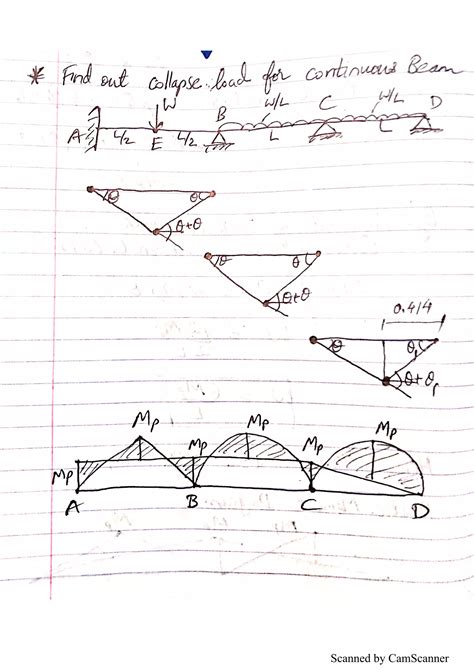 * Find out collapse load for continuous Beam
W B W/L C W/L D
A L/2 E L/2 L L
θ θ
θ+θ
θ θ
θ+θ
0.414
θ θ₁
θ+θ₁
Mp Mp Mp Mp Mp Mp
A B C D
Scanned by CamScanner